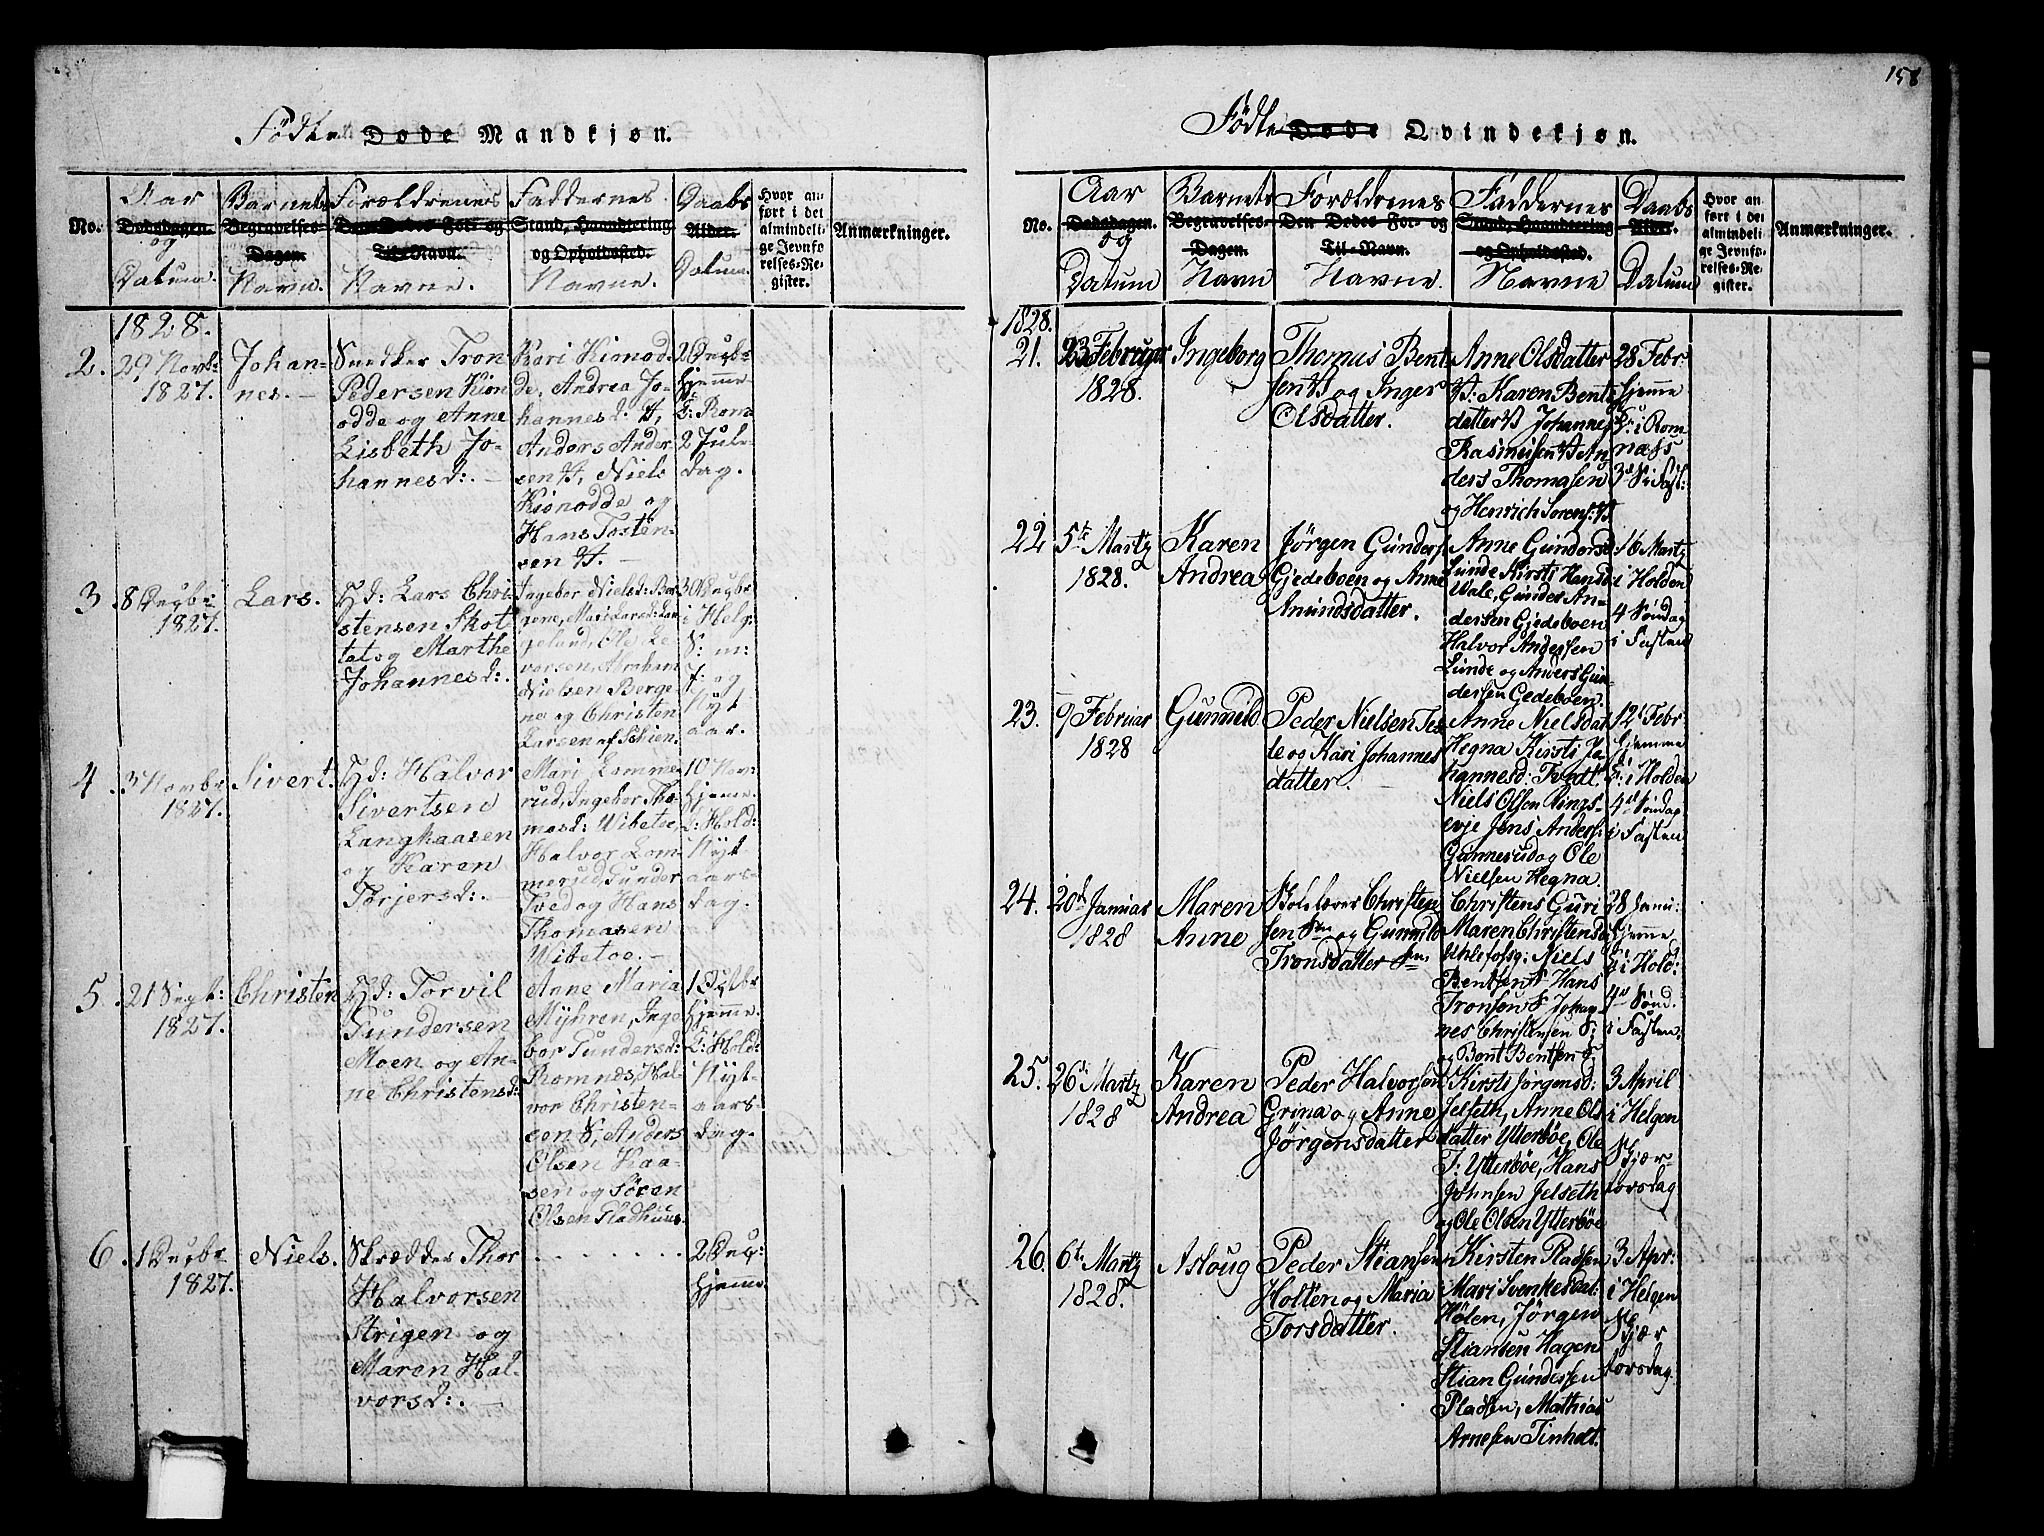 158
Fødte Døde Mandkjøn.
No.
Aar
Dødsdagen.
og
Datum.
Barnets
Begravelses-
Dagen.
Navn.
Forældrenes
Den Dødes For- og
Til-Navn.
Navne.
Faddernes
Stand, Haandtering
og Opholdssted.
Navne.
Daabs
Alder.
Datum.
Hvor an-
ført i det
almindeli-
ge Jevnfø-
relses-Re-
gister.
Anmærkninger.
1828.
2.
29 Novbr
1827.
Johan-
nes.
Snedker Tron
Pedersen Kion
odde og Anne
Lisbeth Jo-
hannesd:.
Kari Kionod-
de, Andrea Jo-
hannesd:
Anders Ander
sen, Niels
Kionodde og
Hans Tosten-
sen
2 Decbr
hjemme
Rom
2 Jule-
dag.
3.
8 Decbr
1827.
Lars.
Hd: Lars Chri
stensen Skot
tet og Marthe
Johannesd:.
Ingebor Nielsd: Ber
gene, Mari Larsd: Lan
geland, Ole Le-
vorsen, Abraham
Nielsen Berge-
ne og Christen
Larsen af Skien.
30 Decbr
i Helg:
S: m:
J: og
Nyt
aar.
4.
3 Novbr
1827.
Sivert.
Hd: Halvor
Sivertsen
Langkaasen
og Karen
Torjersd:.
Mari Lomme
rud, Ingebor Tho
masd: Wibetoe,
Halvor Lom-
merud, Gunder
Tved og Hans
Thomasen
Wibetoe.
10 Nov:
hjeme.
Hold:
Nyt
aars-
dag.
5.
21 Sept:
1827.
Christen
Hd: Torvil
Gundersen
Moen og An-
ne Christensd:
Anne Maria
Myhren, Inge
bor Gundersd:
Romnes, Hal-
vor Christen-
sen S, Anders
Olsen Kaa-
sen og Søren
Olsen Gladhuus.
1 Octbr
hjemme.
Hold:
Nyt-
aars-
dag.
6.
1 Decbr
1827.
Niels.
Skrædder Thor
Halvorsen
Strigen og
Maren Hal-
vorsd:.
. . . . . . .
2 Dec:
hjeme
Fødte Døde Qvindekjøn.
No.
Aar
Dødsdagen.
og
Datum
Barnets
Begravelses-
Dagen.
Navn
Forældrenes
Den Dødes For- og
Til-Navn.
Navne.
Faddernes
Stand, Haandtering
og Opholdssted.
Navne
Daabs
Alder.
Datum
Hvor an-
ført i det
almindeli-
ge Jevnfø-
relses-Re-
gister.
Anmærkninger.
1828.
21.
23 Februar
1828.
Ingeborg
Thomas Bent
sen og Inger
Olsdatter.
Anne Olsdatter
Karen Bents
datter Johannes
Rasmusen An
ders Thomasen
og Henrich Sorens:
28 Febr
hjemme
i Rom
næs
3 S: i Fast:
22
5te Martz
1828.
Karen
Andrea
Jörgen Gunders
Gjedeboen og Anne
Amundsdatter.
Anne Gundersd
Lunde Kirsti Hansd
Wale, Gunder An-
dersen Gjedeboen
Halvor Andersen
Lunde og Anders Gun
dersen Gedeboen.
16 Martz
i Holden
4 Söndag
i Fasten
23.
9 Februar
1828
Gunnild
Peder Nielsen Tes
le og Kari Johannes
datter.
Anne Nielsdat
Hegna Kirsti Jo
hannesd: Tvedt
Niels Olsen Rings-
evje Jens Anders:
Gunnerud og Ole
Nielsen Hegna.
12 Febr
hjemme
i Holden
4 Söndag
i Fasten
24.
20de Januar
1828
Maren
Anne
Christen
sen og Gunnild
Tronsdatter
Christens Guri
Maren Christensd
Uhlefosg: Niels
Bentsen S Hans
Tronsen S Johan
nes Christensen S:
og Bent Bentsen S
28 Janu:
hjemme
i Hold:
4 Sönd.
i Fasten.
25.
26de Martz
1828
Karen
Andrea
Peder Halvorsen
Grina og Anne
Jörgensdatter
Kirsti Jörgensd:
Jelseth, Anne Ols
datter Ytterböe, Ole
T: Ytterböe, Hans
Johnsen Jelseth
og Ole Olsen Ytterböe
3 April
i Helgen
Skjær-
torsdag
26
6te Martz
1828.
Asloug
Peder Stiansen
Holten og Maria
Torsdatter.
Kirsten Pladsen
Mari Svenkesdat:
Hølen, Jörgen
Stiansen Hagen
Stian Gundersen
Pladsen, Mathias
Arnesen Tinholt.
3 Apr:
i Helgen
Skjær
torsdag